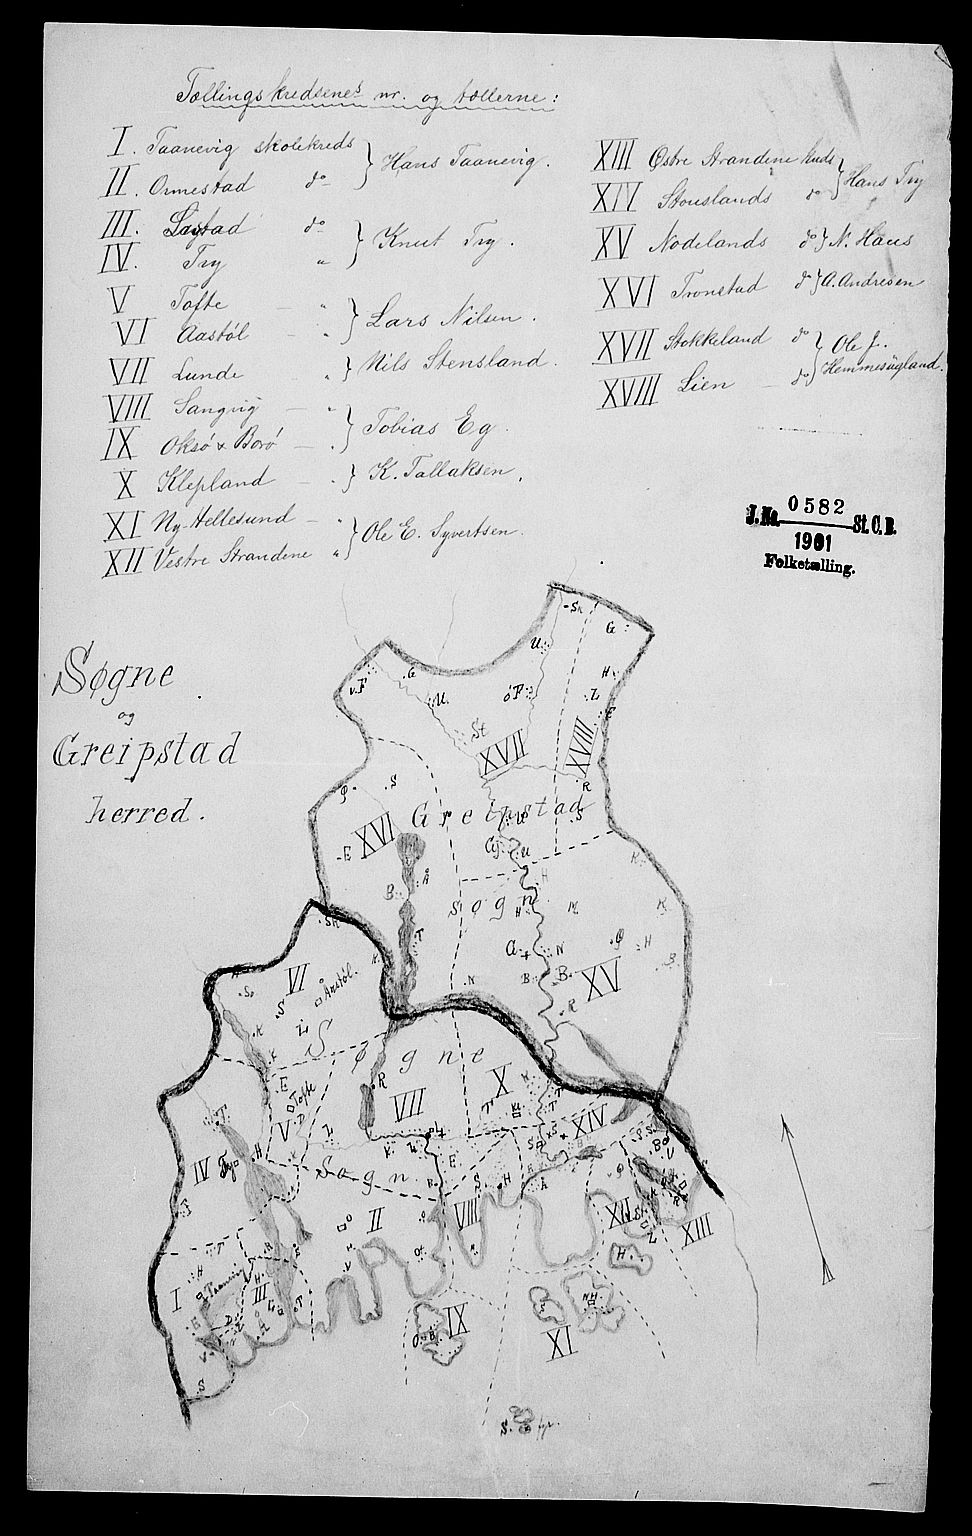 Tællingskredsenes nr. og tællerne:
I. Taanevig skolekreds } Hans Taanevig.
II. Ormestad do
III. Løgtad do } Knut Try.
IV. Try "
V Tofte — " } Lars Nilsen.
VI Aastøl — "
VII Lunde — " } Nils Stensland.
VIII Sangvig — " } Tobias Eg.
IX Oksø & Borø — "
X Klepland — " } K. Tallaksen.
XI Ny-Hellesund — " } Ole E. Syvertsen.
XII Vestre Strandene "
XIII Østre Strandene kreds } Hans Try
XIV Stouslands do
XV Nodelands do } N. Haus
XVI Tronstad do } A. Andresen
XVII Stokkeland do } Ole J. Hemmesugland.
XVIII Lien — do
J.No. 0582 St.C.B.
1901
Folketælling.
Søgne
og
Greipstad
herred.
XVII
XVIII
XVI
Greipstad
sogn
XV
VI
Aastøl.
Søgne
Tofte
VII
X
XIV
V
IV Try
Sogn
II
VIII
XII
XIII
I
Taanevig
III
IX
XI
NH
S. fyr.